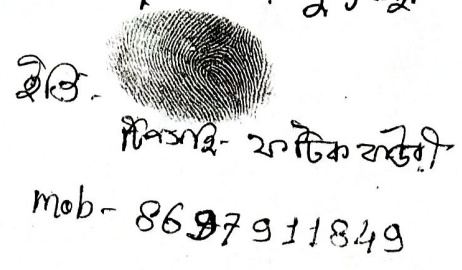 ইতি-
টিপসহি- ফটিক বাউরী
mob- 8697911849